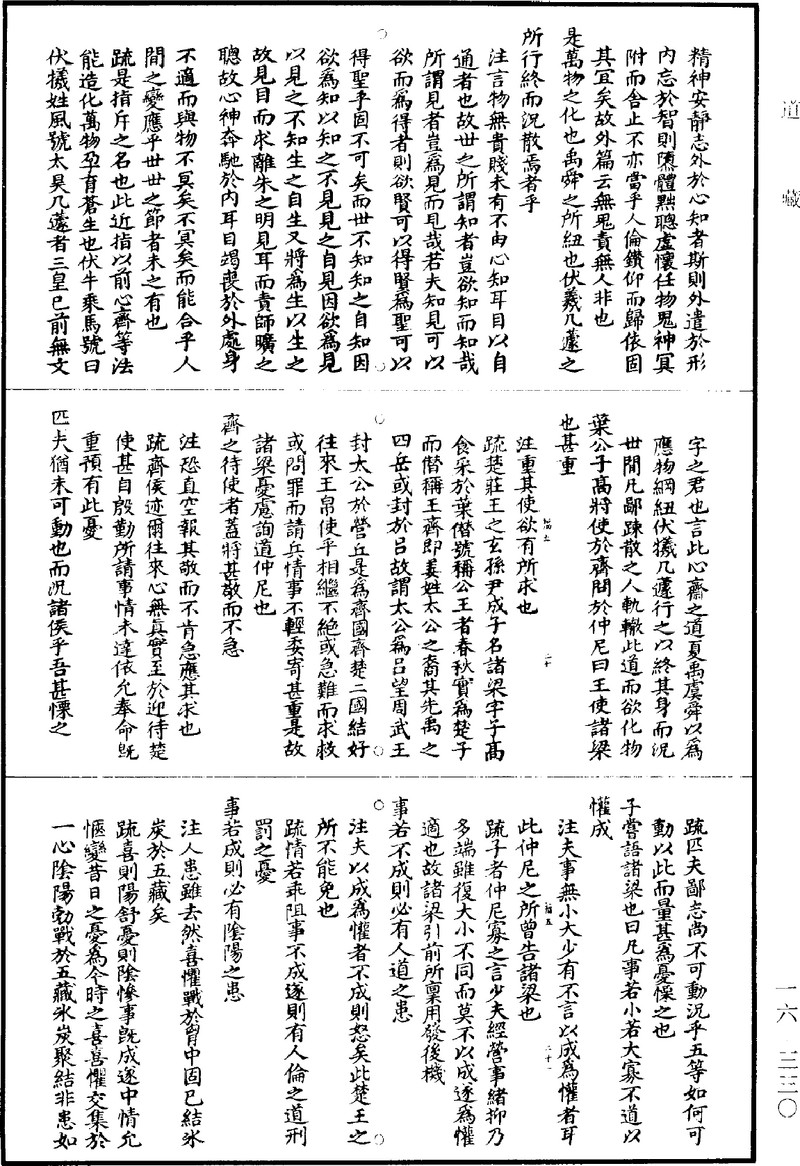 道藏
精神安靜志外於心知者斯則外遣於形
內忘於智則隳體黜聰虛懷任物鬼神冥
附而舍止不亦當乎人倫鑽仰而歸依固
其宜矣故外篇云無鬼責無人非也
是萬物之化也禹舜之所紐也伏羲几蘧之
所行終而況散焉者乎
注言物無貴賤未有不由心知耳目以自
通者也故世之所謂知者豈欲知而知哉
所謂見者豈爲見而見哉若夫知見可以
欲而爲得者則欲賢可以得賢爲聖可以
得聖乎固不可矣而世不知知之自知因
欲爲知以知之不見見之自見因欲爲見
以見之不知生之自生又將爲生以生之
故見目而求離朱之明見耳而責師曠之
聰故心神奔馳於內耳目竭喪於外處身
不適而與物不冥矣不冥矣而能合乎人
間之變應乎世世之節者未之有也
疏是指斥之名也此近指以前心齊等法
能造化萬物孕育蒼生也伏牛乘馬號曰
伏犧姓風號太昊几蘧者三皇已前無文
字之君也言此心齋之道夏禹虞舜以爲
應物綱紐伏犧几蘧行之以終其身而況
世間凡鄙踈散之人軌轍此道而欲化物
葉公子高將使於齊問於仲尼曰王使諸梁
也甚重
注重其使欲有所求也
疏楚莊王之玄孫尹成子名諸梁字子高
食采於葉僭號稱公王者春秋實爲楚子
而僭稱王齊即姜姓太公之裔其先禹之
四岳或封於呂故謂太公爲呂望周武王
封太公於營丘是爲齊國齊楚二國結好
往來玉帛使乎相繼不絕或急難而求救
或問罪而請兵情事不輕委寄甚重是故
諸梁憂慮詢道仲尼也
齊之待使者蓋將甚敬而不急
注恐直空報其敬而不肯急應其求也
疏齊侯迹爾往來心無真實至於迎待楚
使甚自殷勤所請事情未達依允奉命旣
重預有此憂
匹夫猶未可動也而況諸侯乎吾甚慄之
疏匹夫鄙志尚不可動況乎五等如何可
動以此而量甚爲憂慄之也
子嘗語諸梁也曰凡事若小若大寡不道以
懽成
注夫事無小大少有不言以成爲懽者耳
此仲尼之所曾告諸梁也
疏子者仲尼寡之言少夫經營事緒抑乃
多端雖復大小不同而莫不以成遂爲懽
適也故諸梁引前所稟用發後機
事若不成則必有人道之患
注夫以成爲懽者不成則怒矣此楚王之
所不能免也
疏情若乖阻事不成遂則有人倫之道刑
罰之憂
事若成則必有陰陽之患
注人患雖去然喜懼戰於胷中固已結冰
炭於五藏矣
疏喜則陽舒憂則陰慘事旣成遂中情允
愜變昔日之憂爲今時之喜喜懼交集於
一心陰陽勃戰於五藏冰炭聚結非患如
一六·三三〇